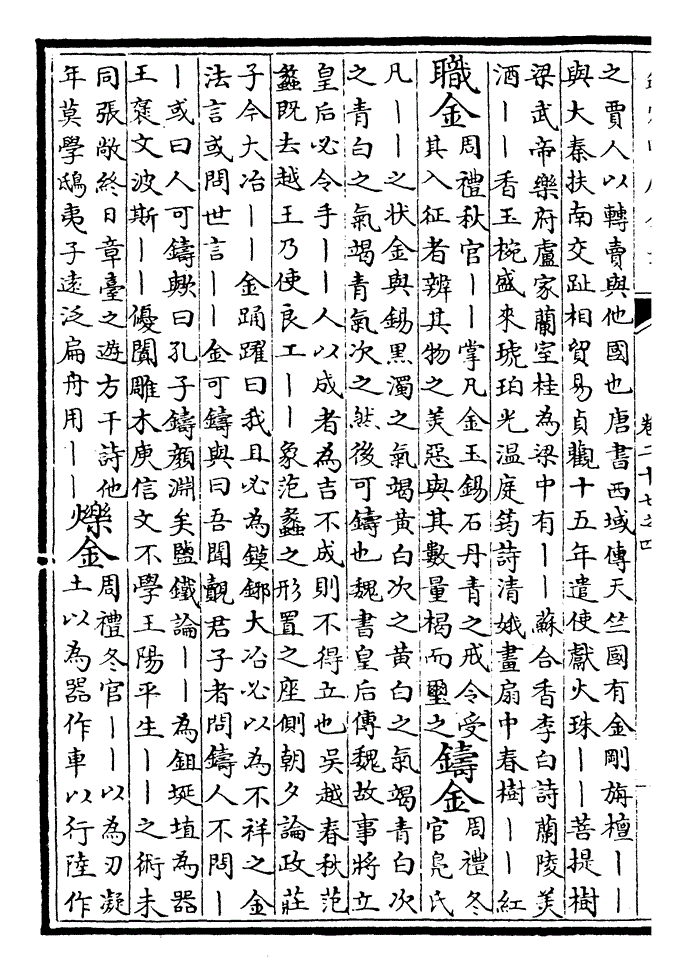 卷二十七之四
之賈人以轉賣與他國也唐書西域傳天竺國有金剛旃檀丨丨
與大秦扶南交趾相貿易貞觀十五年遣使獻火珠丨丨菩提樹
梁武帝樂府盧家蘭室桂為梁中有丨丨蘇合香李白詩蘭陵美
酒丨丨香玉椀盛來琥珀光温庭筠詩清娥畫扇中春樹丨丨紅
職金
周禮秋官丨丨掌凡金玉錫石丹青之戒令受
其入征者辨其物之美惡與其數量楬而璽之
鑄金
周禮冬
官鳧氏
凡丨丨之状金與錫黑濁之氣竭黄白次之黄白之氣竭青白次
之青白之氣竭青氣次之然後可鑄也魏書皇后傳魏故事將立
皇后必令手丨丨人以成者為吉不成則不得立也吳越春秋范
蠡既去越王乃使良工丨丨象范蠡之形置之座側朝夕論政莊
子今大冶丨丨金踊躍曰我且必為鏌鋣大冶必以為不祥之金
法言或問世言丨丨金可鑄與曰吾聞覿君子者問鑄人不問丨
丨或曰人可鑄歟曰孔子鑄顔淵矣鹽鐵論丨丨為鉏埏埴為器
王褒文波斯丨丨優闐雕木庾信文不學王陽平生丨丨之術未
同張敞終日章臺之遊方干詩他
年莫學鴟夷子逺泛扁舟用丨丨
爍金
周禮冬官丨丨以為刃凝
土以為器作車以行陸作